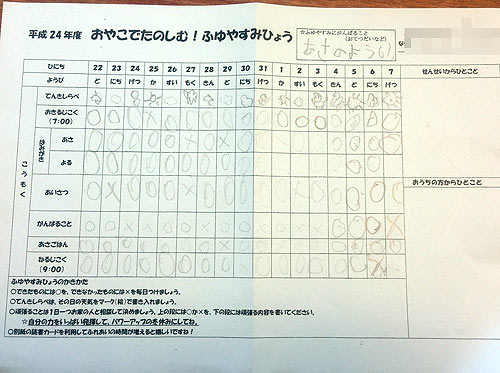 平成24年度 おやこでたのしむ!ふゆやすみひょう
☆ふゆやすみにがんばること
(おてつだいなど)
あさのようい
な
ひにち 22 23 24 25 26 27 28 29 30 31 1 2 3 4 5 6 7 せんせいからひとこと
ようび ど にち げつ か すい もく きん ど にち げつ か すい もく きん ど にち げつ
てんきしらべ
おきるじこく
(7:00)
こうもく
はみがき
あさ
よる
あいさつ
おうちの方からひとこと
がんばること
あさごはん
ねるじこく
(9:00)
ふゆやすみひょうのかきかた
○できたものには○を、できなかったものには×を毎日つけましょう。
○てんきしらべは、その日の天気をマーク(絵)で書き入れましょう。
○頑張ることは1日一つお家の人と相談して決めましょう。上の段には○か×を、下の段には頑張る内容を書いてください。
☆自分の力をいっぱい発揮して、パワーアップの冬休みにしてね。
○別紙の読書カードを利用してふれあいの時間が増えると嬉しいですね!